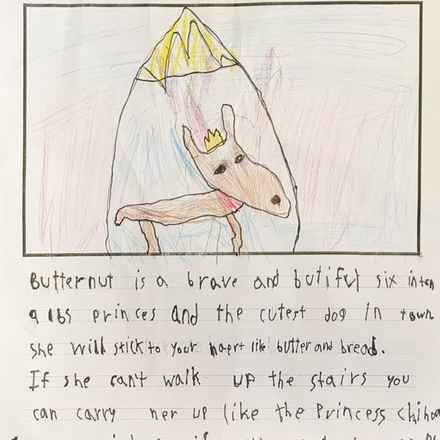 Butternut is a brave and butifyl six inten
9 lbs princes and the cutest dog in town
she will stick to your haert like butter and bread.
If she can't walk up the stairs you
can carry her up like the Princess chihoa